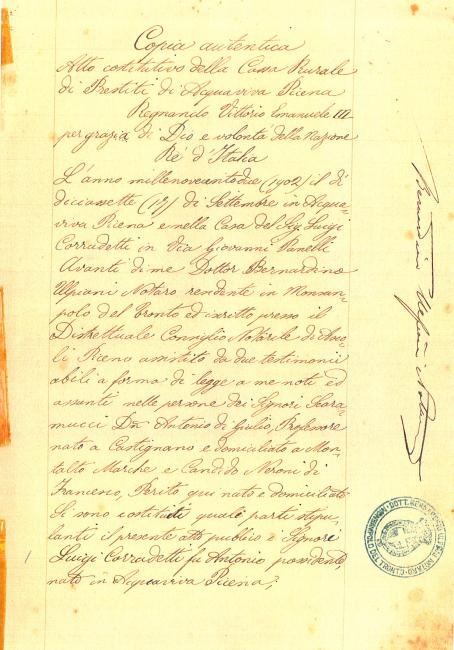 Copia autentica
Atto costitutivo della Cassa Rurale
di Prestiti di Acquaviva Picena
Regnando Vittorio Emanuele III
per grazia di Dio e volontà della Nazione
Rè d'Italia
L'anno millenovecentodue (1902) il dì
diciassette (17) di Settembre in Acqua-
viva Picena e nella Casa del Sig. Luigi
Corradetti in Via Giovanni Panelli
Avanti di me Dottor Bernardino
Ulpiani Notaro residente in Monsam-
polo del Tronto ed iscritto presso il
Distrettuale Consiglio Notarile di Asco-
li Piceno assistito da due testimonii
abili a forma di legge a me noti ed
assunti nelle persone dei Signori Scara-
mucci Don Antonio di Giulio, Professore
nato a Castignano e domiciliato a Mon-
talto Marche e Candido Neroni di
Francesco, Perito qui nato e domiciliato
Si sono costituiti quale parti stipu-
lanti il presente atto publico i Signori
Luigi Corradetti fu Antonio possidente,
nato in Acquaviva Picena;
Bernardino Ulpiani Notaro